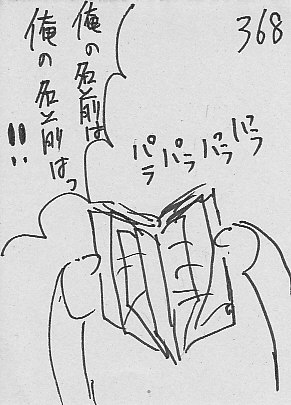 368
俺の名前は
俺の名前はっ
!!
パラ
パラ
パラ
パラ